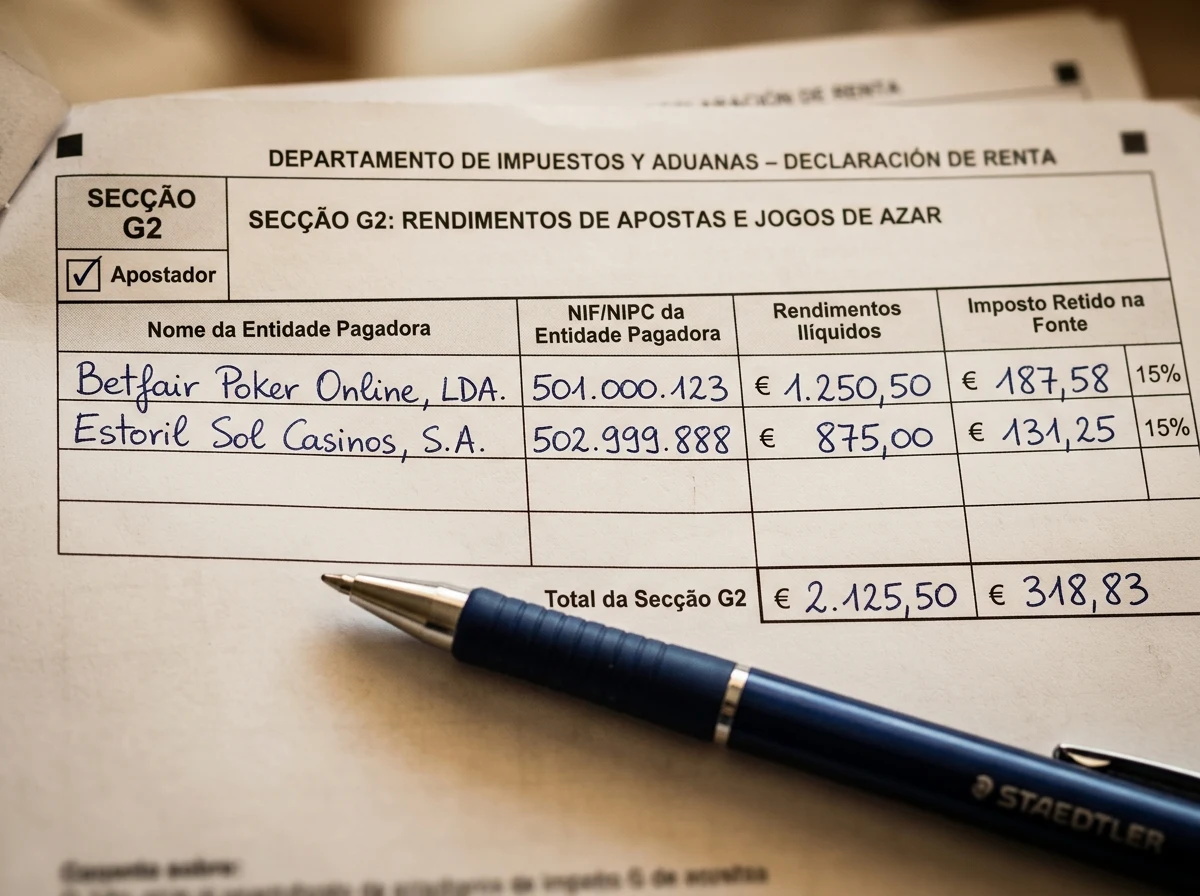 DECLARACIÓN DE RENTA
DEPARTAMENTO DE IMPUESTOS Y ADUANAS – DECLARACIÓN DE RENTA
SECÇÃO
G2
SECÇÃO G2: RENDIMENTOS DE APOSTAS E JOGOS DE AZAR
Apostador
Nome da Entidade Pagadora
NIF/NIPC da
Entidade Pagadora
Rendimentos
Ilíquidos
Imposto Retido na
Fonte
Betfair Poker Online, LDA. 501.000.123 € 1.250,50 € 187,58 15%
Estoril Sol Casinos, S.A. 502.999.888 € 875,00 € 131,25 15%
Total da Secção G2 € 2.125,50 € 318,83
STAEDTLER